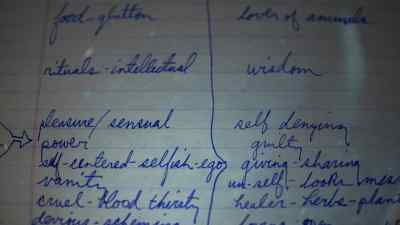 food-glutton lover of animals
rituals-intellectual wisdom
pleasure/sensual self denying
power guilty
self-centered-selfish-ego giving-sharing
vanity un-self-looks
cruel-blood thirsty healer-herbs-plant
devious-scheming